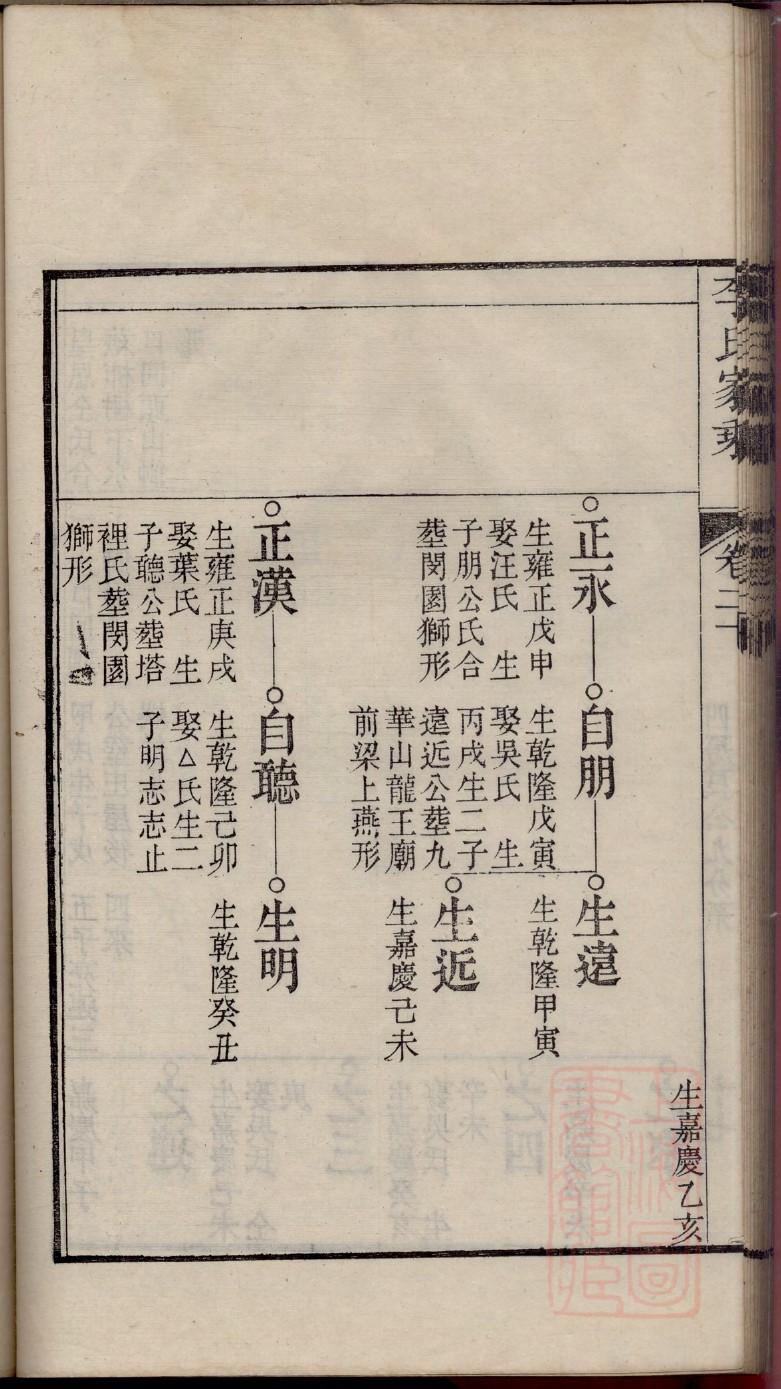 李氏家乘
卷二十
生嘉慶乙亥
正永
生雍正戊申
娶汪氏 生
子朋公氏合
塟閔園獅形
自朋
生乾隆戊寅
娶吳氏 生
丙戌生二子
遠近公塟九
華山龍王廟
前梁上燕形
生遠
生乾隆甲寅
生近
生嘉慶己未
正漢
生雍正庚戌
娶葉氏 生
子聽公塟塔
裡氏塟閔園
獅形
自聽
生乾隆己卯
娶△氏生二
子明志志止
生明
生乾隆癸丑